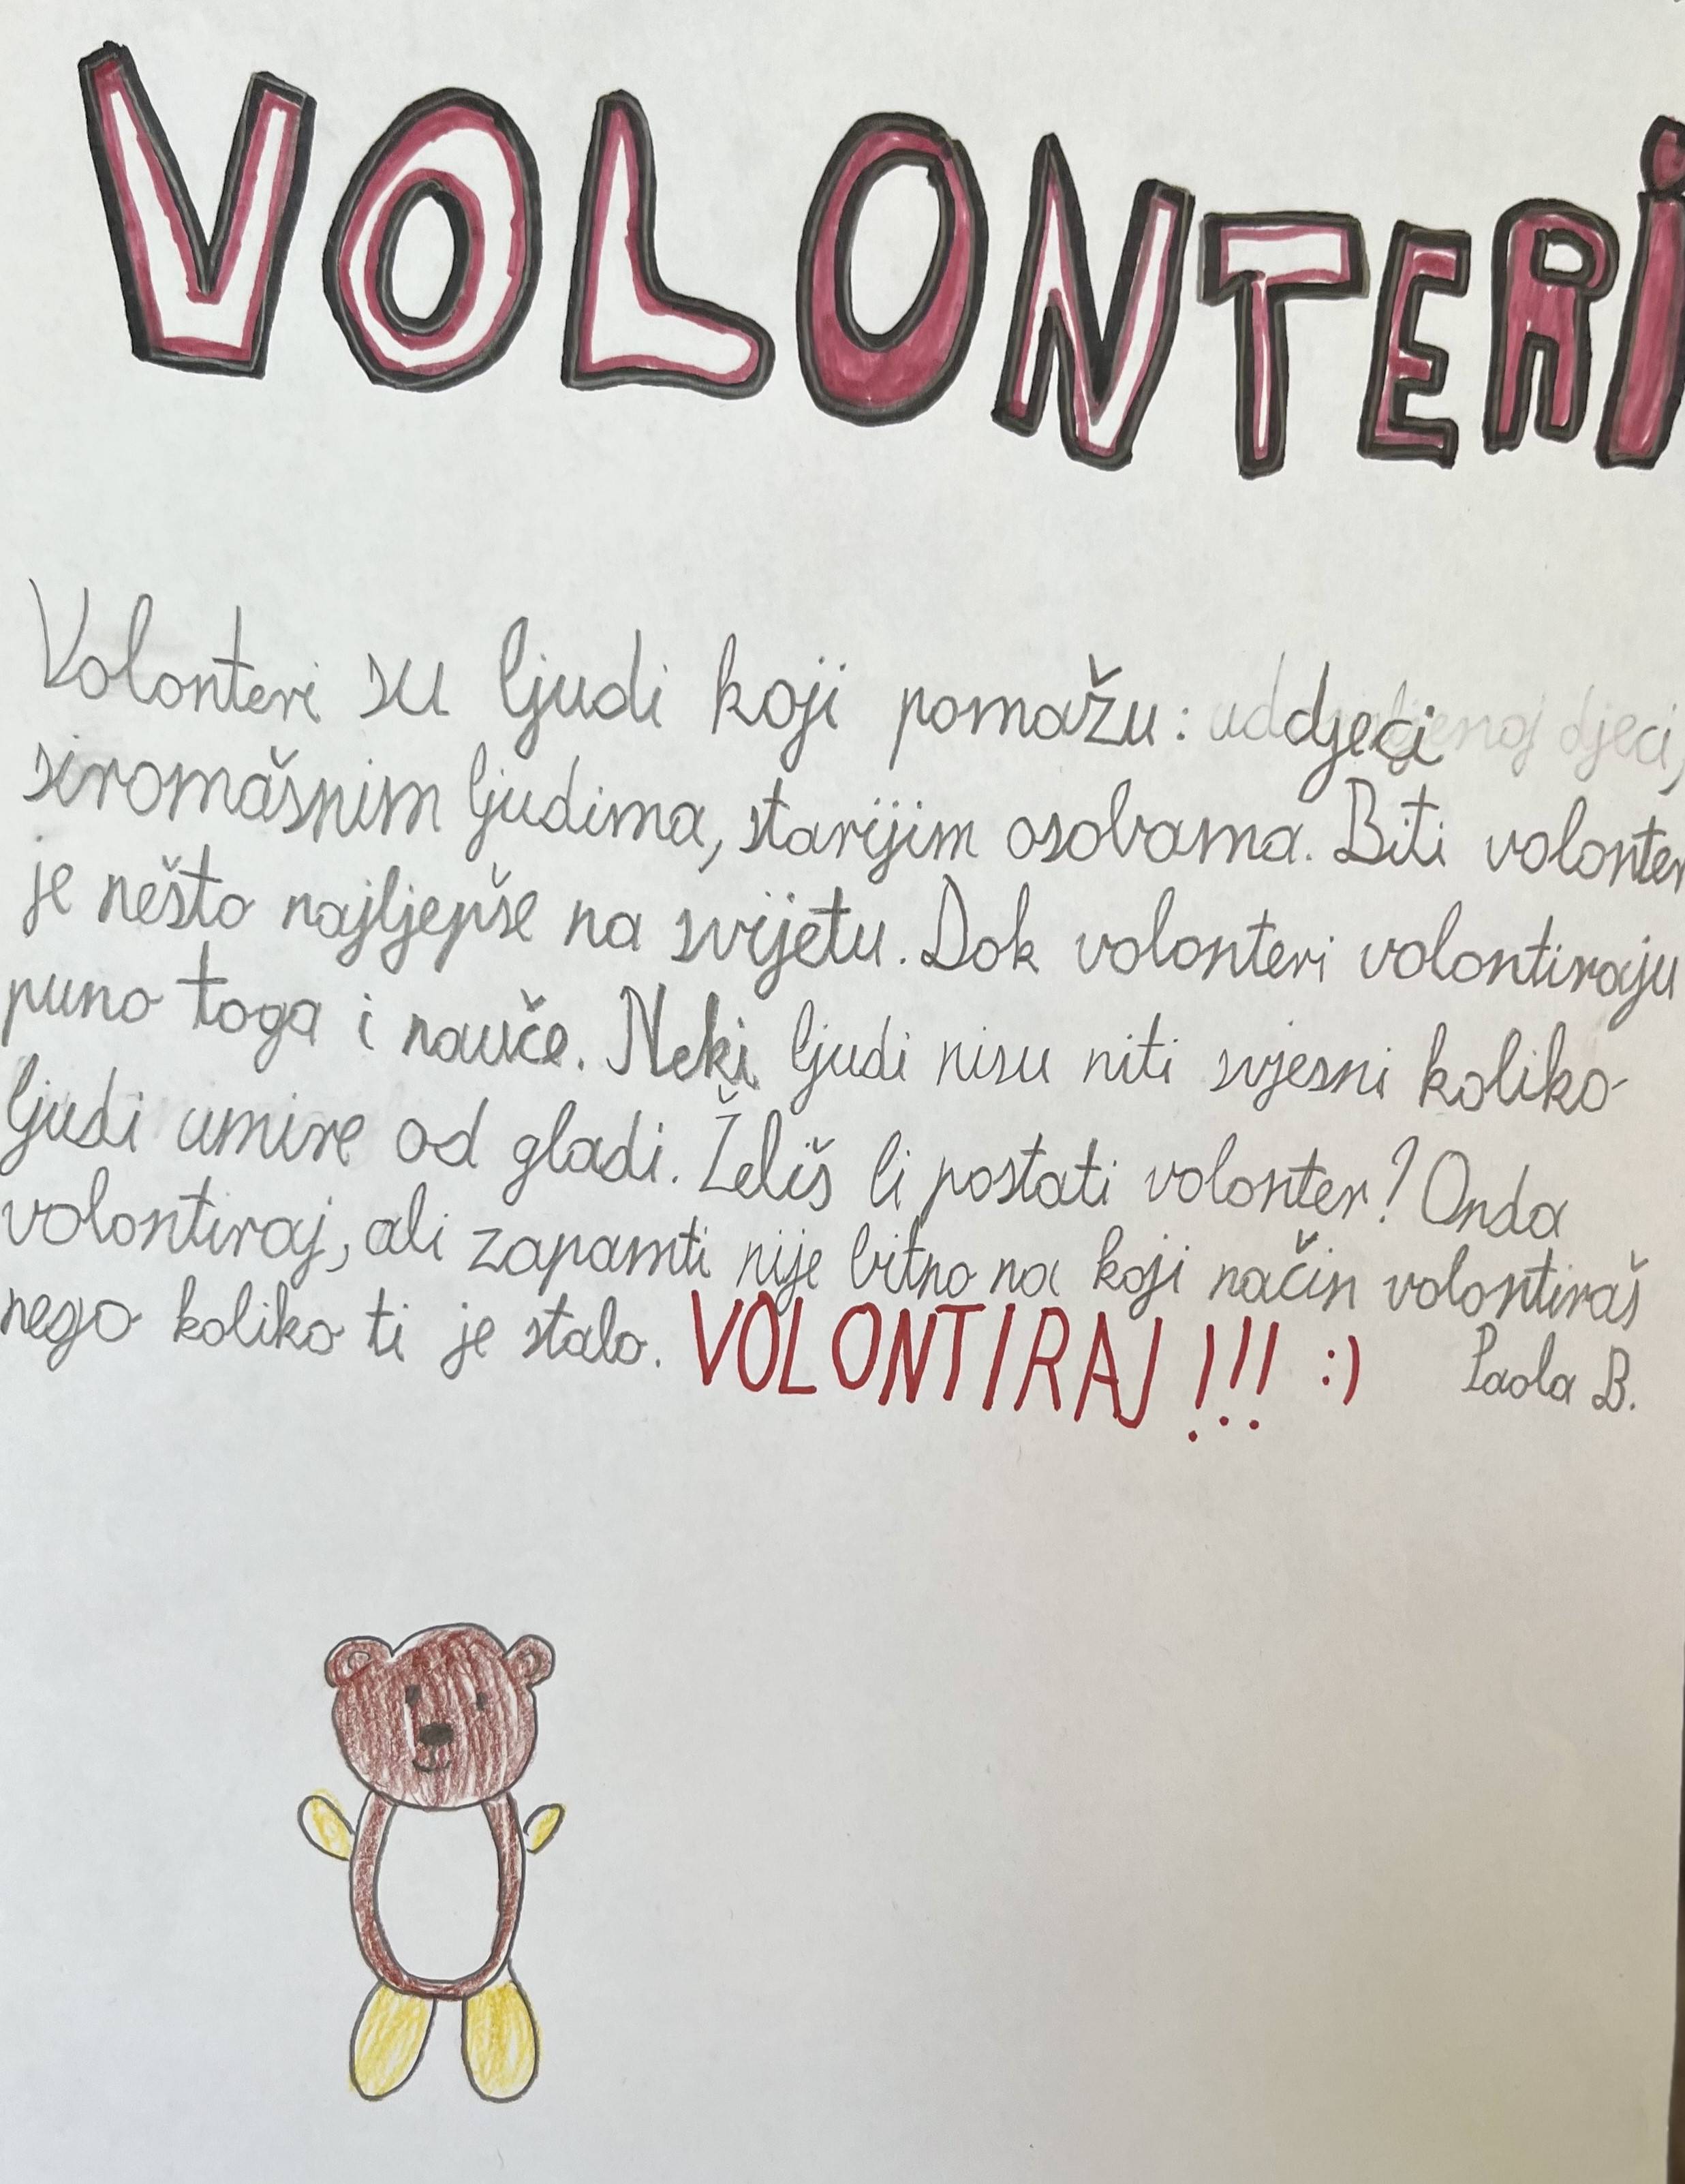 VOLONTERI
Volonteri su ljudi koji pomažu: djeci
siromašnim ljudima, starijim osobama. Biti volonter
je nešto najljepše na svijetu. Dok volonteri volontiraju
puno toga i nauče. Neki ljudi nisu niti svjesni koliko
ljudi umire od gladi. Želiš li postati volonter? Onda
volontiraj, ali zapamti nije bitno na koji način volontiraš
nego koliko ti je stalo. VOLONTIRAJ!!! :) Paola B.